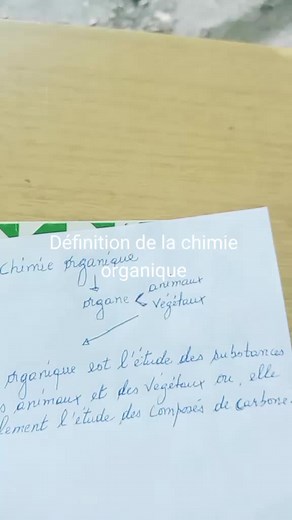 Définition de la chimie
organique
Chimie organique
organe < animaux
végétaux
organique est l'étude des substances
s animaux et des végétaux ou, elle
lement l'étude des composés de carbone.